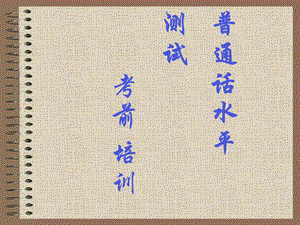 普通话水平
测试
考前培训